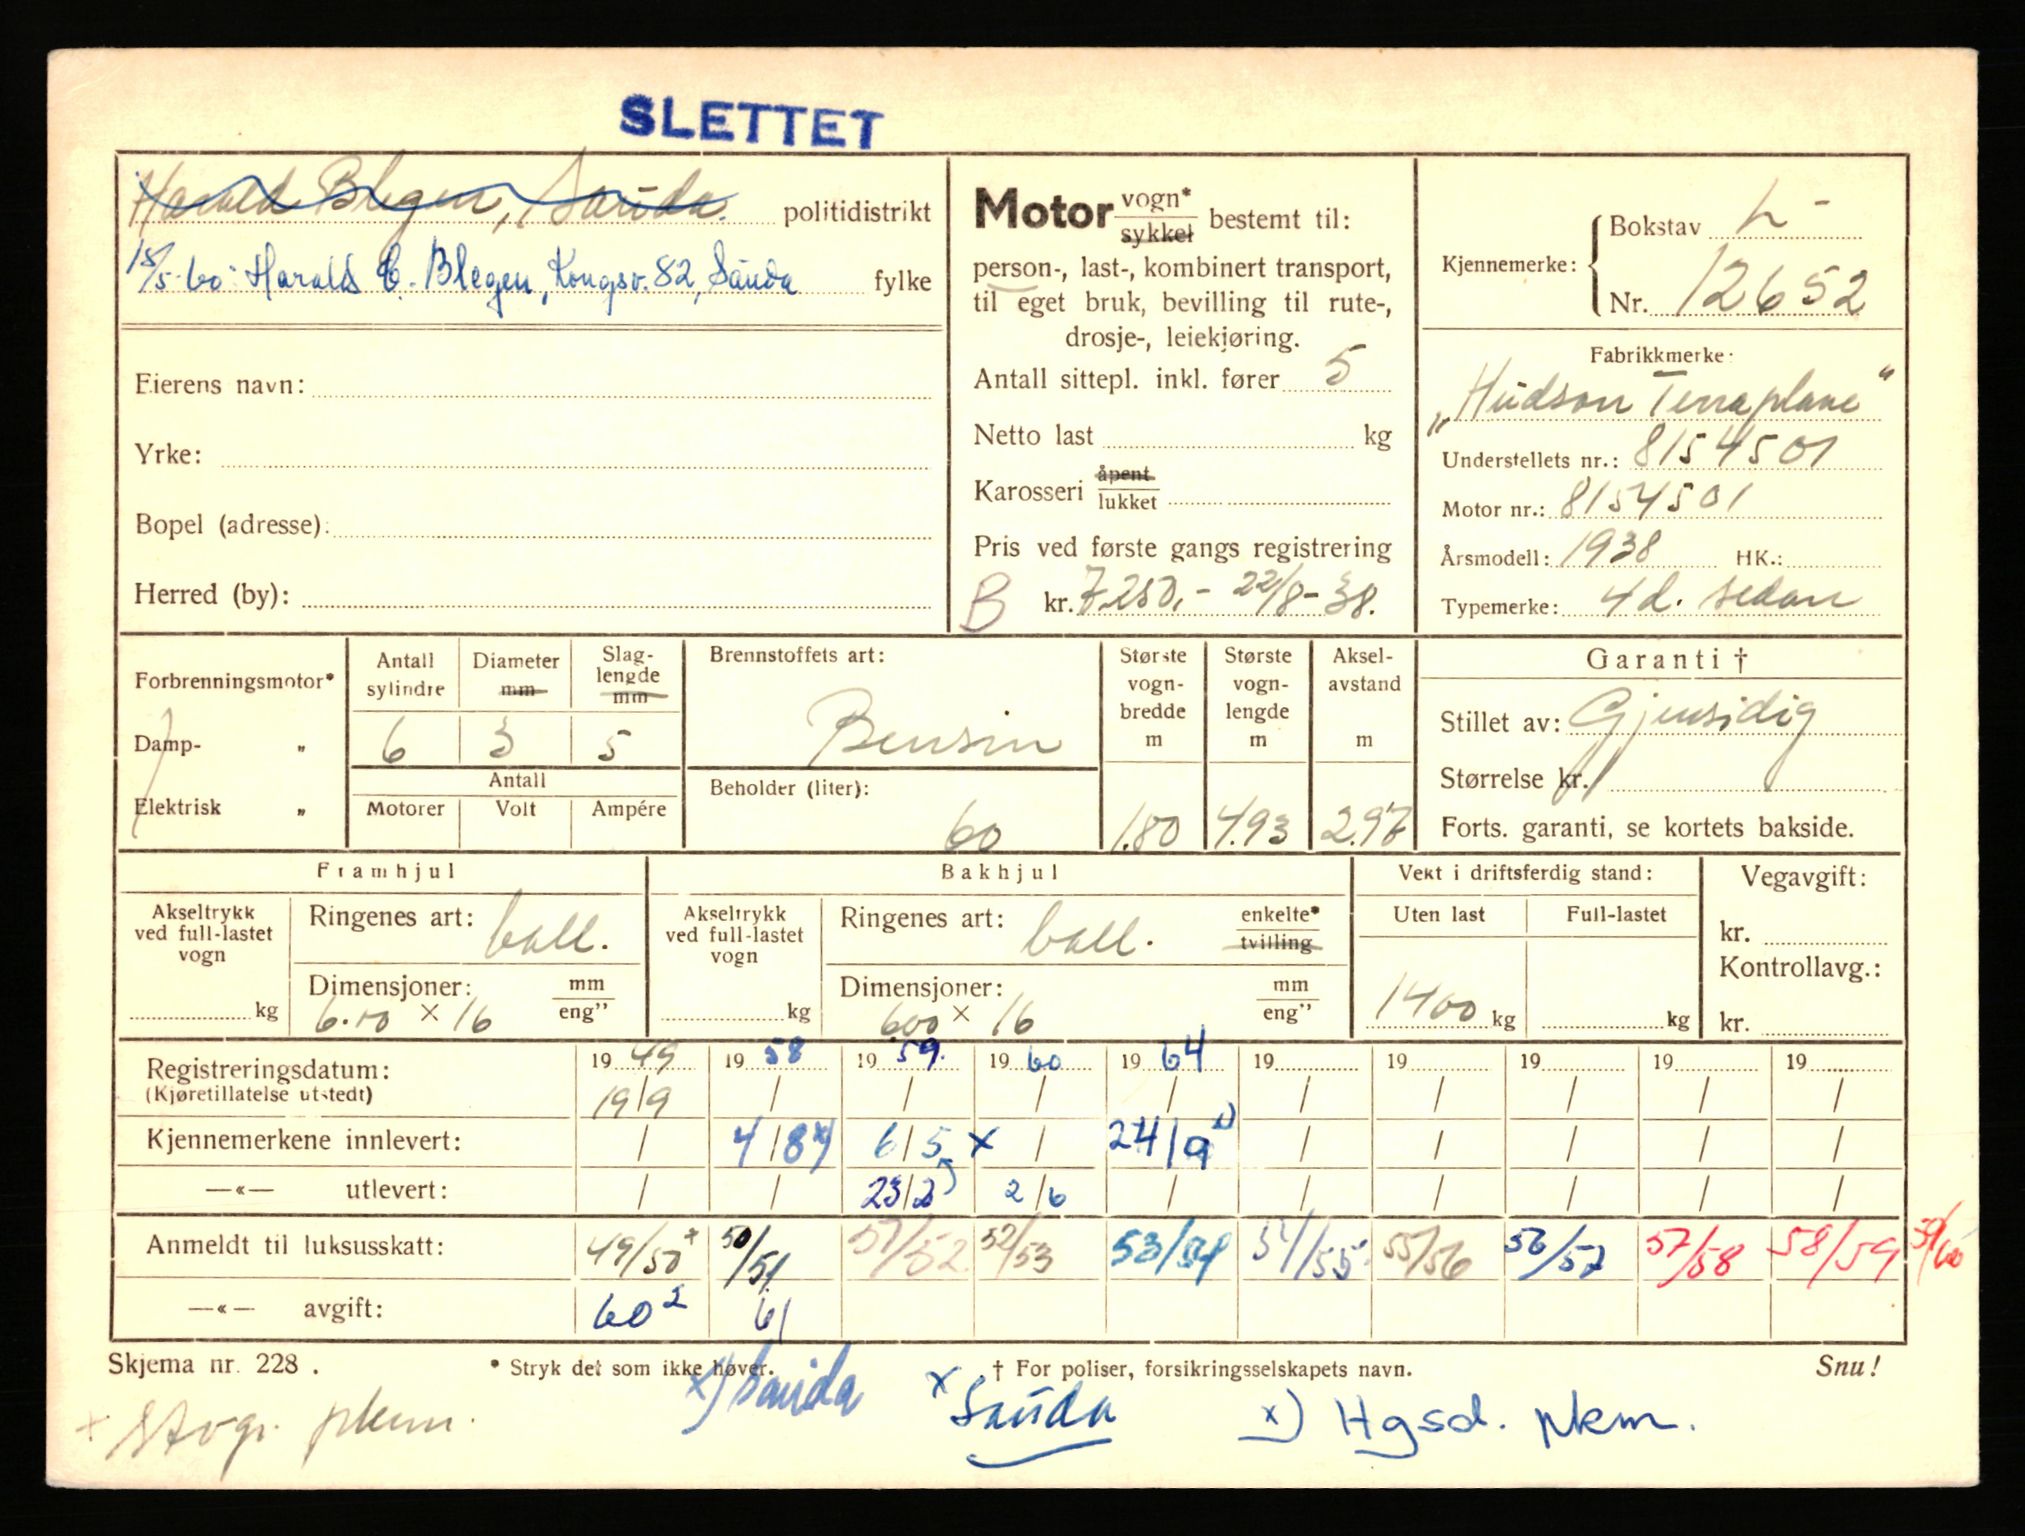 SLETTET
Harald Blegen, Sauda. politidistrikt
15/5-60: Harald E. Blegen, Kongsv. 82, Sauda fylke
Eierens navn:
Yrke:
Bopel (adresse):
Herred (by):
Motor vogn* sykkel bestemt til:
person-, last-, kombinert transport,
til eget bruk, bevilling til rute-,
drosje-, leiekjøring.
Antall sittepl. inkl. fører 5
Netto last kg
Karosseri åpent lukket
Pris ved første gangs registrering
B kr. 7.250,- 22/8-38.
Kjennemerke: Bokstav L-
Nr. 12652
Fabrikkmerke:
"Hudson Terraplane"
Understellets nr.: 8154501
Motor nr.: 8154501
Årsmodell: 1938 HK.:
Typemerke: 4d. sedan
Forbrenningsmotor*
Damp- "
Elektrisk "
Antall sylindre Diameter mm Slaglengde mm
6 3 5
Antall
Motorer Volt Ampére
Brennstoffets art:
Bensin
Beholder (liter):
60
Største vogn-bredde m
1.80
Største vogn-lengde m
4.93
Aksel-avstand m
2.97
Garanti †
Stillet av: Gjensidig
Størrelse kr.
Forts. garanti, se kortets bakside.
Framhjul
Akseltrykk ved full-lastet vogn
kg
Ringenes art: ball.
Dimensjoner: mm
6.00 × 16 eng"
Bakhjul
Akseltrykk ved full-lastet vogn
kg
Ringenes art: ball. enkelte* tvilling
Dimensjoner: mm
600 × 16 eng"
Vekt i driftsferdig stand:
Uten last Full-lastet
1400 kg kg
Vegavgift:
kr.
Kontrollavg.:
kr.
Registreringsdatum: 1949 1958 1959. 1960 1964 19 19 19 19 19
(Kjøretillatelse utstedt) 19/9 / / / / / / / / /
Kjennemerkene innlevert: / 4/8 x) 6/5 x / 24/9 x) / / / / /
—«— utlevert: / / 23/2 2/6 / / / / / /
Anmeldt til luksusskatt: 49/50 x 50/51 51/52 52/53 53/54 54/55 55/56 56/57 57/58 58/59 59/60
—«— avgift: 60 61
Skjema nr. 228. * Stryk det som ikke høver. † For poliser, forsikringsselskapets navn. Snu!
x) Sauda x Sauda x) Hgsd. pkm.